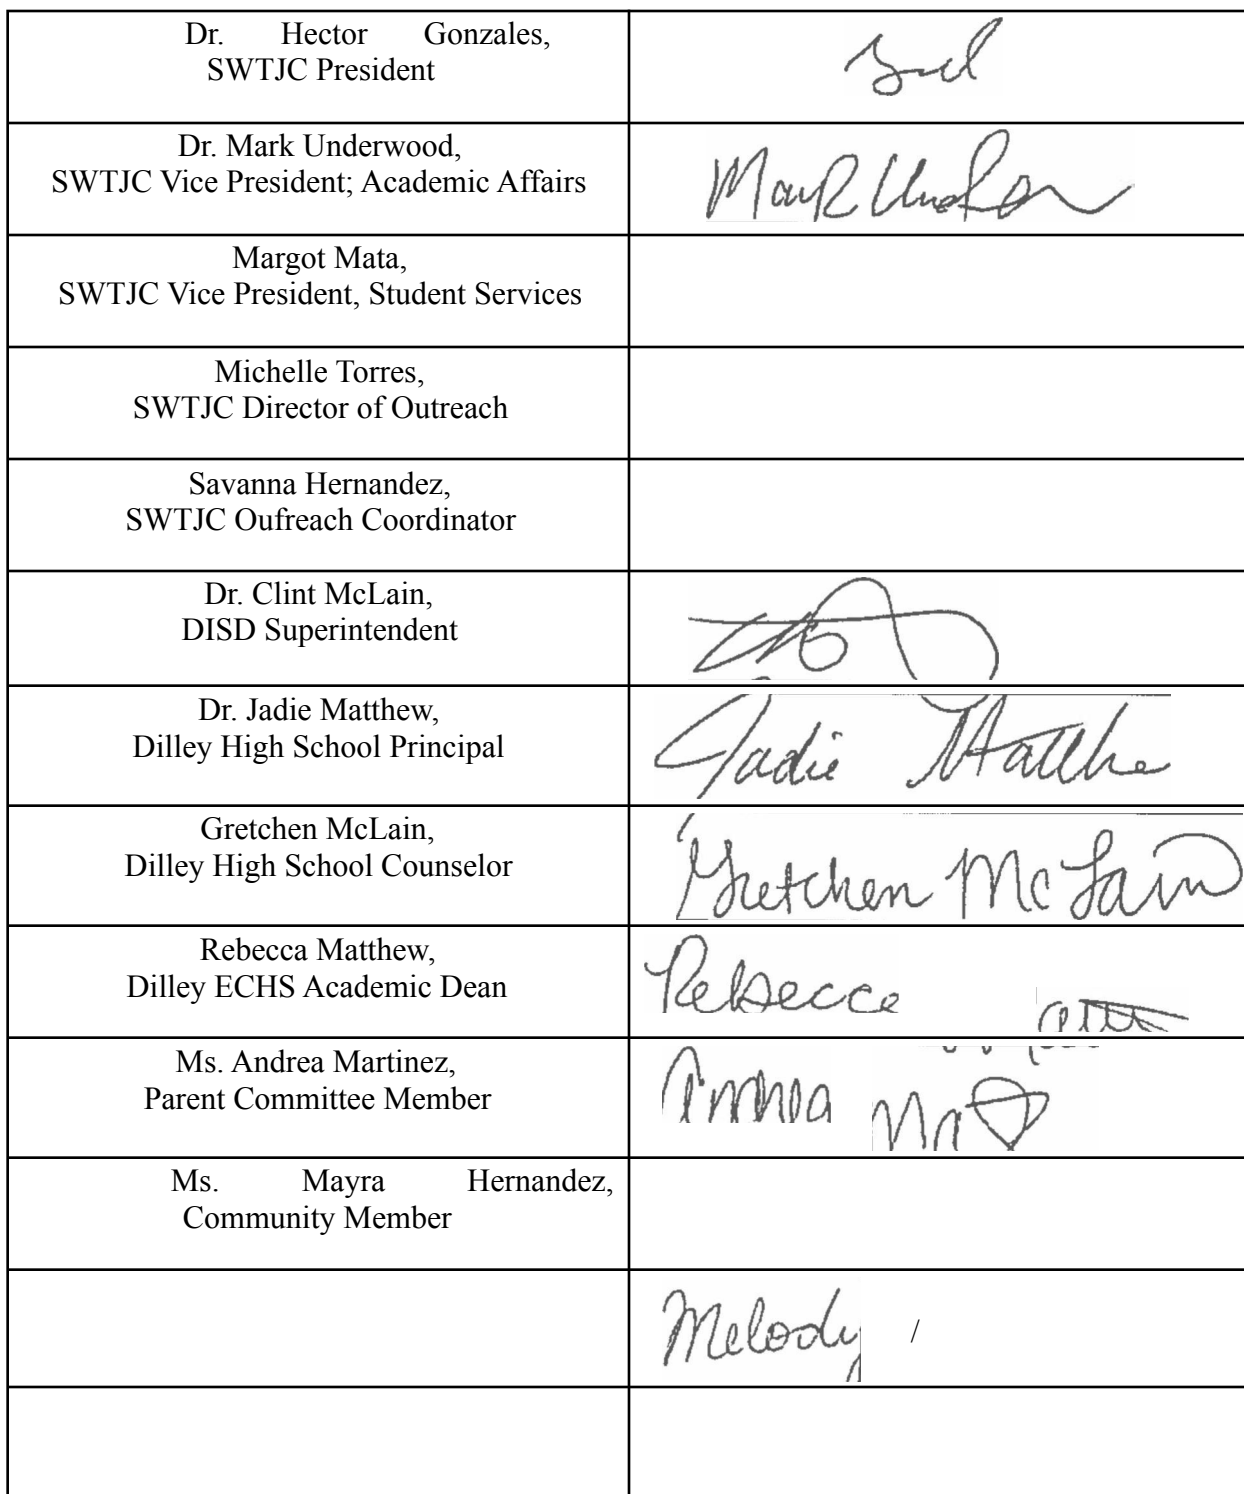 Dr. Hector Gonzales,
SWTJC President
Dr. Mark Underwood,
SWTJC Vice President; Academic Affairs
Margot Mata,
SWTJC Vice President, Student Services
Michelle Torres,
SWTJC Director of Outreach
Savanna Hernandez,
SWTJC Oufreach Coordinator
Dr. Clint McLain,
DISD Superintendent
Dr. Jadie Matthew,
Dilley High School Principal
Jadie
Gretchen McLain,
Dilley High School Counselor
Gretchen McLain
Rebecca Matthew,
Dilley ECHS Academic Dean
Rebecca
Ms. Andrea Martinez,
Parent Committee Member
Ms. Mayra Hernandez,
Community Member
Melody /